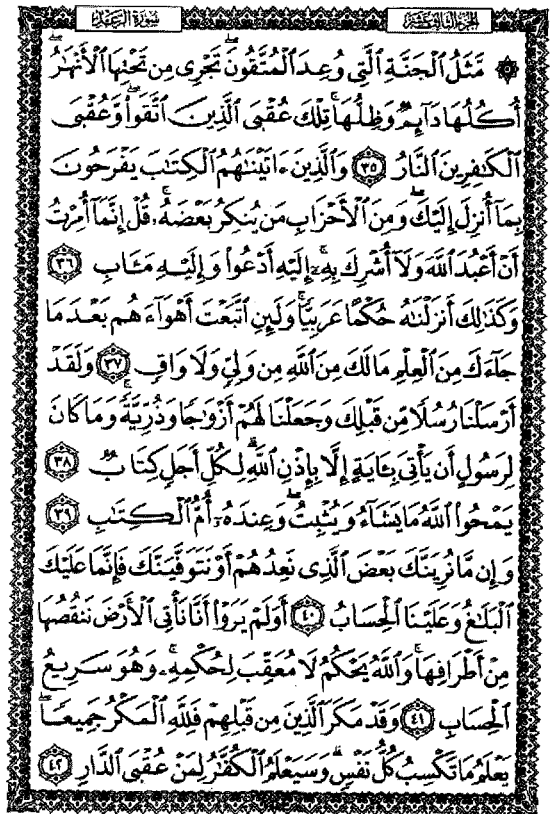 الجزء الثالث عشر سورة الرعد
۞ مَّثَلُ ٱلْجَنَّةِ ٱلَّتِى وُعِدَ ٱلْمُتَّقُونَۖ تَجْرِى مِن تَحْتِهَا ٱلْأَنْهَٰرُۖ
أُكُلُهَا دَآئِمٌ وَظِلُّهَاۚ تِلْكَ عُقْبَى ٱلَّذِينَ ٱتَّقَوا۟ۖ وَّعُقْبَى
ٱلْكَٰفِرِينَ ٱلنَّارُ ٣٥ وَٱلَّذِينَ ءَاتَيْنَٰهُمُ ٱلْكِتَٰبَ يَفْرَحُونَ
بِمَآ أُنزِلَ إِلَيْكَۖ وَمِنَ ٱلْأَحْزَابِ مَن يُنكِرُ بَعْضَهُۥۚ قُلْ إِنَّمَآ أُمِرْتُ
أَنْ أَعْبُدَ ٱللَّهَ وَلَآ أُشْرِكَ بِهِۦٓۚ إِلَيْهِ أَدْعُوا۟ وَإِلَيْهِ مَـَٔابِ ٣٦
وَكَذَٰلِكَ أَنزَلْنَٰهُ حُكْمًا عَرَبِيًّاۚ وَلَئِنِ ٱتَّبَعْتَ أَهْوَآءَهُم بَعْدَ مَا
جَآءَكَ مِنَ ٱلْعِلْمِ مَا لَكَ مِنَ ٱللَّهِ مِن وَلِىٍّ وَلَا وَاقٍ ٣٧ وَلَقَدْ
أَرْسَلْنَا رُسُلًا مِّن قَبْلِكَ وَجَعَلْنَا لَهُمْ أَزْوَٰجًا وَذُرِّيَّةًۚ وَمَا كَانَ
لِرَسُولٍ أَن يَأْتِىَ بِـَٔايَةٍ إِلَّا بِإِذْنِ ٱللَّهِۗ لِكُلِّ أَجَلٍ كِتَابٌ ٣٨
يَمْحُوا۟ ٱللَّهُ مَا يَشَآءُ وَيُثْبِتُۖ وَعِندَهُۥٓ أُمُّ ٱلْكِتَٰبِ ٣٩
وَإِن مَّا نُرِيَنَّكَ بَعْضَ ٱلَّذِى نَعِدُهُمْ أَوْ نَتَوَفَّيَنَّكَ فَإِنَّمَا عَلَيْكَ
ٱلْبَلَٰغُ وَعَلَيْنَا ٱلْحِسَابُ ٤٠ أَوَلَمْ يَرَوْا۟ أَنَّا نَأْتِى ٱلْأَرْضَ نَنقُصُهَا
مِنْ أَطْرَافِهَاۚ وَٱللَّهُ يَحْكُمُ لَا مُعَقِّبَ لِحُكْمِهِۦۚ وَهُوَ سَرِيعُ
ٱلْحِسَابِ ٤١ وَقَدْ مَكَرَ ٱلَّذِينَ مِن قَبْلِهِمْ فَلِلَّهِ ٱلْمَكْرُ جَمِيعًاۖ
يَعْلَمُ مَا تَكْسِبُ كُلُّ نَفْسٍۗ وَسَيَعْلَمُ ٱلْكُفَّٰرُ لِمَنْ عُقْبَى ٱلدَّارِ ٤٢